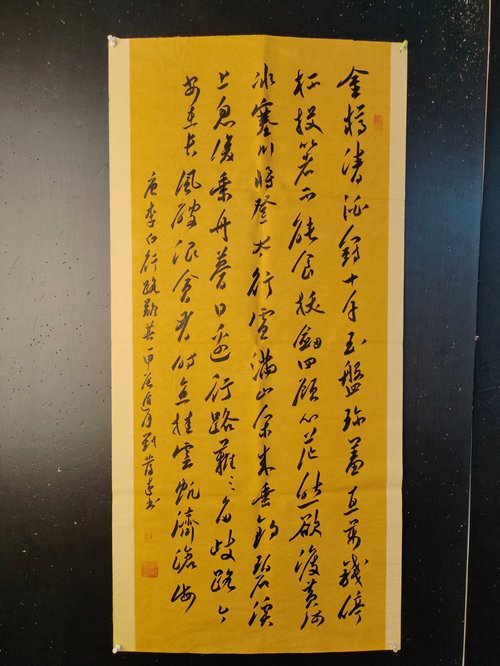 金樽清酒斗十千玉盤珍羞直萬錢停
杯投箸不能食拔劍四顧心茫然欲渡黃河
冰塞川將登太行雪滿山閒來垂釣碧溪
上忽復乘舟夢日邊行路難々多歧路今
安在長風破浪會有時直挂雲帆濟滄海
唐李白行路難其一甲辰月劉書